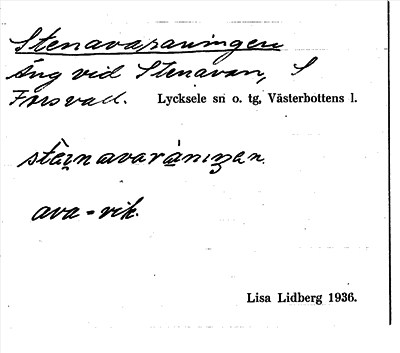 Stenavaraningen
Äng vid Stenavan, S
Forsvall. Lycksele sn o. tg, Västerbottens l.
stèi̯navarȧniŋen.
ava = vik.
Lisa Lidberg 1936.